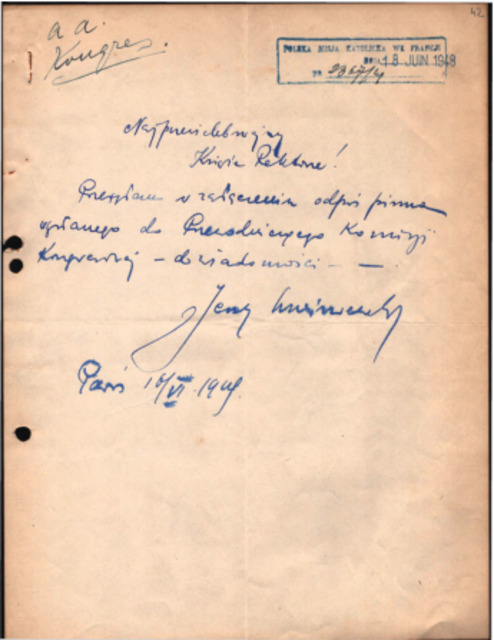 42
a a.
Kongres.
POLSKA MISJA KATOLICKA WE FRANCJI
DNIA 18 JUIN 1948
NR.
Najprzewielebniejszy
Księże Rektorze!
Przesyłam w załączeniu odpis pisma
wysłanego do Przewodniczącego Komisji
Kongresowej – do wiadomości –
Jerzy
Paris 16/VI 1948.